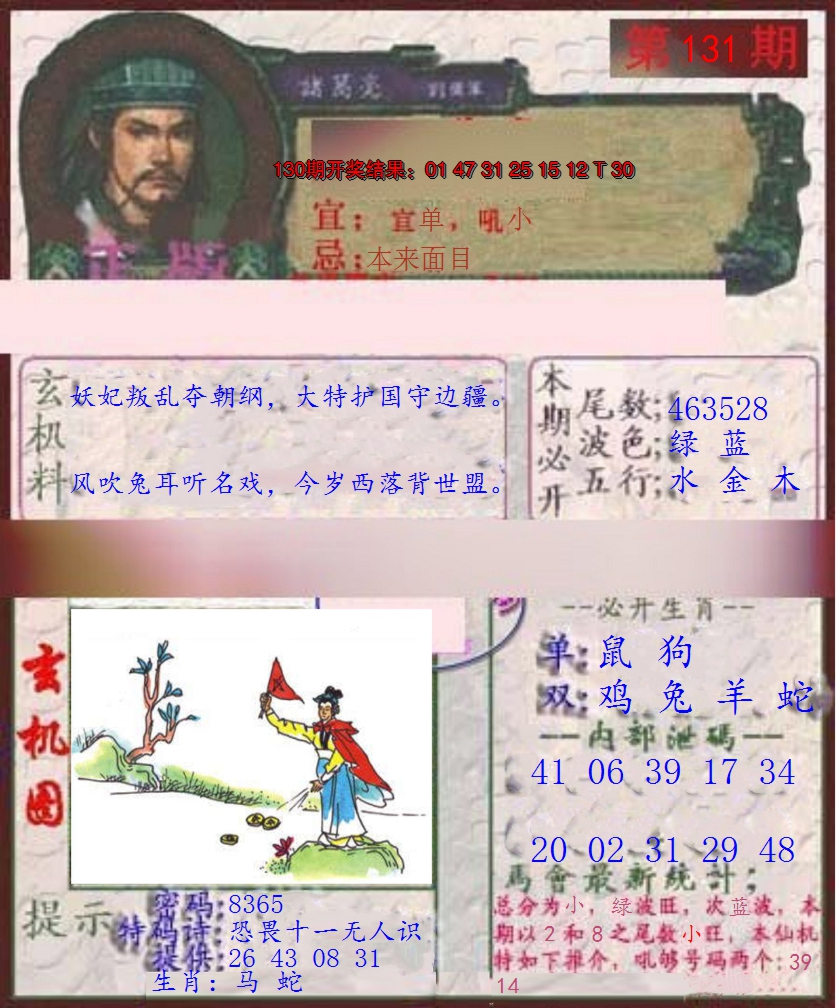 第 131 期
諸葛亮
130期开奖结果：01 47 31 25 15 12 T 30
宜；宜单，吼小
忌；本来面目
正版
玄机料
妖妃叛乱夺朝纲，大特护国守边疆。
风吹兔耳听名戏，今岁西落背世盟。
本期必开
尾数；463528
波色；绿 蓝
五行；水 金 木
玄机图
--必开生肖--
单：鼠 狗
双：鸡 兔 羊 蛇
—内部泄碼—
41 06 39 17 34
20 02 31 29 48
馬會最新統計；
总分为小，绿波旺，次蓝波，本
期以2和8之尾数小旺，本仙机
特如下推介，吼够号码两个：39
14
提示
密码：8365
特码诗：恐畏十一无人识
提供：26 43 08 31
生肖：马 蛇